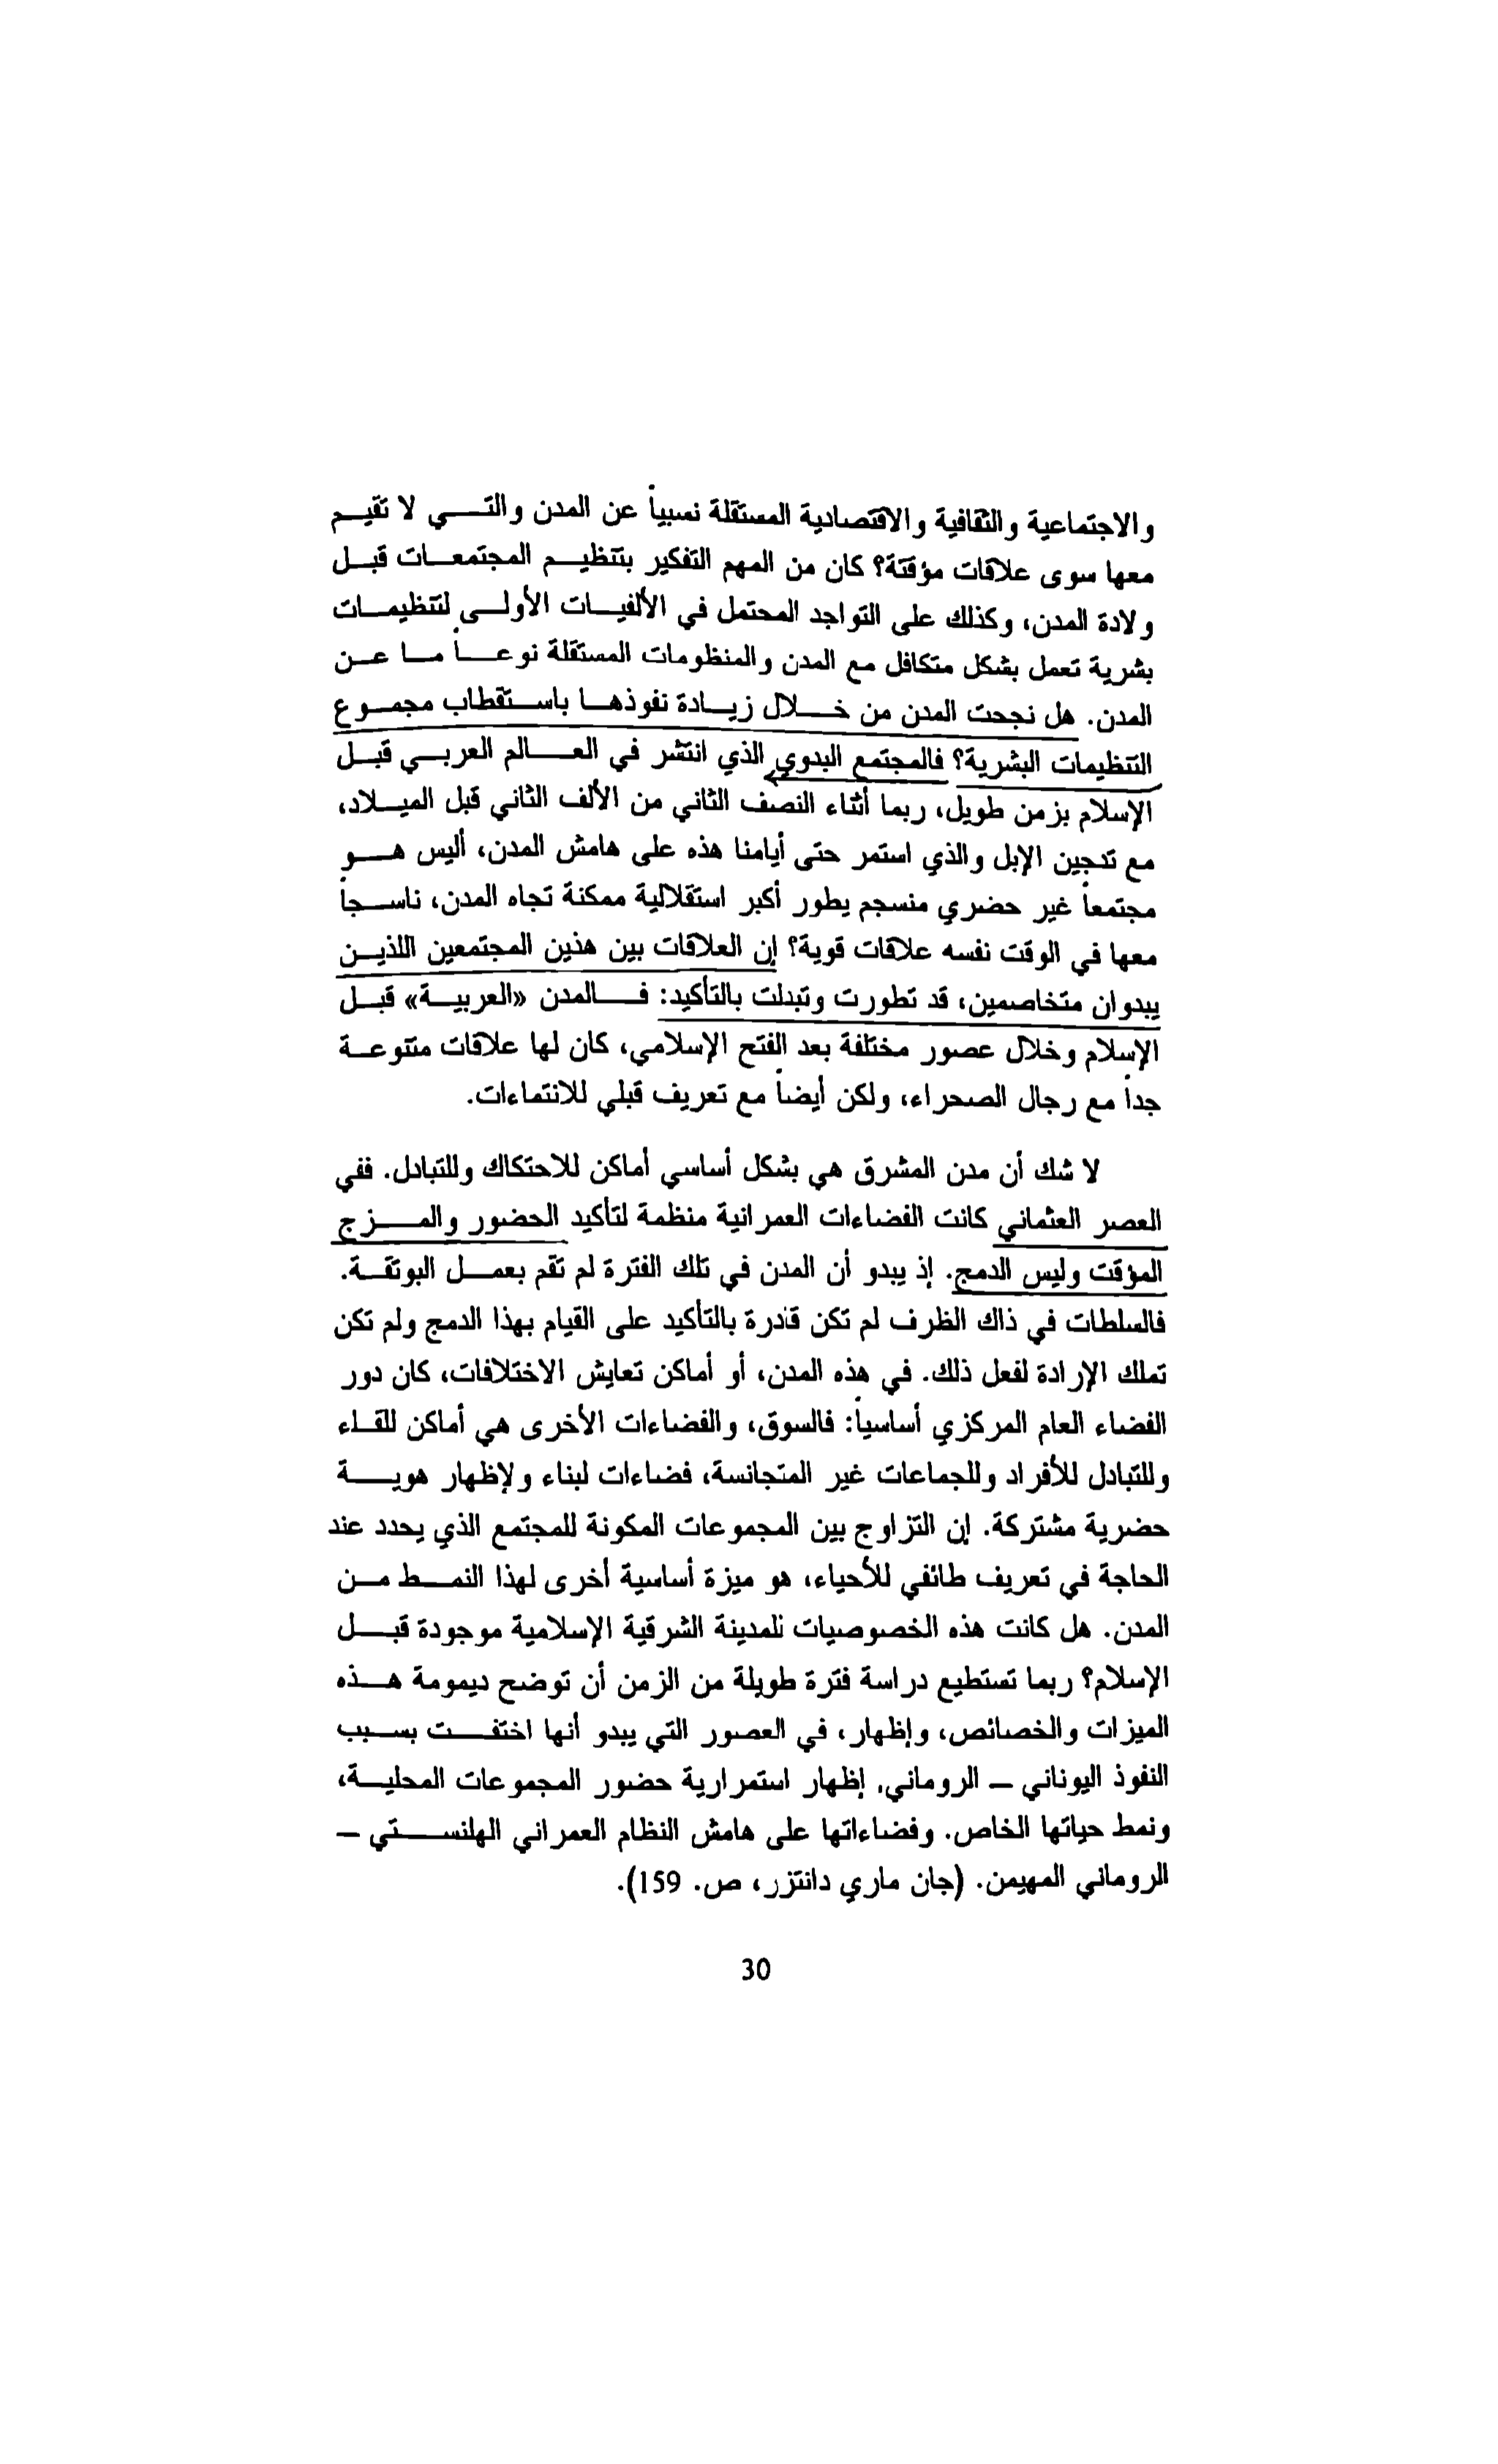 والاجتماعية والثقافية والاقتصادية المستقلة نسبياً عن المدن والتي لا تقيم
معها سوى علاقات مؤقتة؟ كان من المهم التفكير بتنظيم المجتمعات قبل
ولادة المدن، وكذلك على التواجد المحتمل في الألفيات الأولى لتنظيمات
بشرية تعمل بشكل متكافل مع المدن والمنظومات المستقلة نوعاً ما عن
المدن. هل نجحت المدن من خلال زيادة نفوذها باستقطاب مجموع
التنظيمات البشرية؟ فالمجتمع البدوي الذي انتشر في العالم العربي قبل
الإسلام بزمن طويل، ربما أثناء النصف الثاني من الألف الثاني قبل الميلاد،
مع تدجين الإبل والذي استمر حتى أيامنا هذه على هامش المدن، أليس هو
مجتمعاً غير حضري منسجم يطور أكبر استقلالية ممكنة تجاه المدن، ناسجاً
معها في الوقت نفسه علاقات قوية؟ إن العلاقات بين هذين المجتمعين اللذين
يبدوان متخاصمين، قد تطورت وتبدلت بالتأكيد: فالمدن «العربية» قبل
الإسلام وخلال عصور مختلفة بعد الفتح الإسلامي، كان لها علاقات متنوعة
جداً مع رجال الصحراء، ولكن أيضاً مع تعريف قبلي للانتماءات.
لا شك أن مدن المشرق هي بشكل أساسي أماكن للاحتكاك وللتبادل. ففي
العصر العثماني كانت الفضاءات العمرانية منظمة لتأكيد الحضور والمزج
المؤقت وليس الدمج. إذ يبدو أن المدن في تلك الفترة لم تقم بعمل البوتقة.
فالسلطات في ذاك الظرف لم تكن قادرة بالتأكيد على القيام بهذا الدمج ولم تكن
تملك الإرادة لفعل ذلك. في هذه المدن، أو أماكن تعايش الاختلافات، كان دور
الفضاء العام المركزي أساسياً: فالسوق، والفضاءات الأخرى هي أماكن للقاء
وللتبادل للأفراد وللجماعات غير المتجانسة، فضاءات لبناء ولإظهار هوية
حضرية مشتركة. إن التزاوج بين المجموعات المكونة للمجتمع الذي يحدد عند
الحاجة في تعريف طائفي للأحياء، هو ميزة أساسية أخرى لهذا النمط من
المدن. هل كانت هذه الخصوصيات للمدينة الشرقية الإسلامية موجودة قبل
الإسلام؟ ربما تستطيع دراسة فترة طويلة من الزمن أن توضح ديمومة هذه
الميزات والخصائص، وإظهار، في العصور التي يبدو أنها اختفت بسبب
النفوذ اليوناني – الروماني. إظهار استمرارية حضور المجموعات المحلية،
ونمط حياتها الخاص. وفضاءاتها على هامش النظام العمراني الهلنستي –
الروماني المهيمن. (جان ماري دانتزر، ص. 159).
30